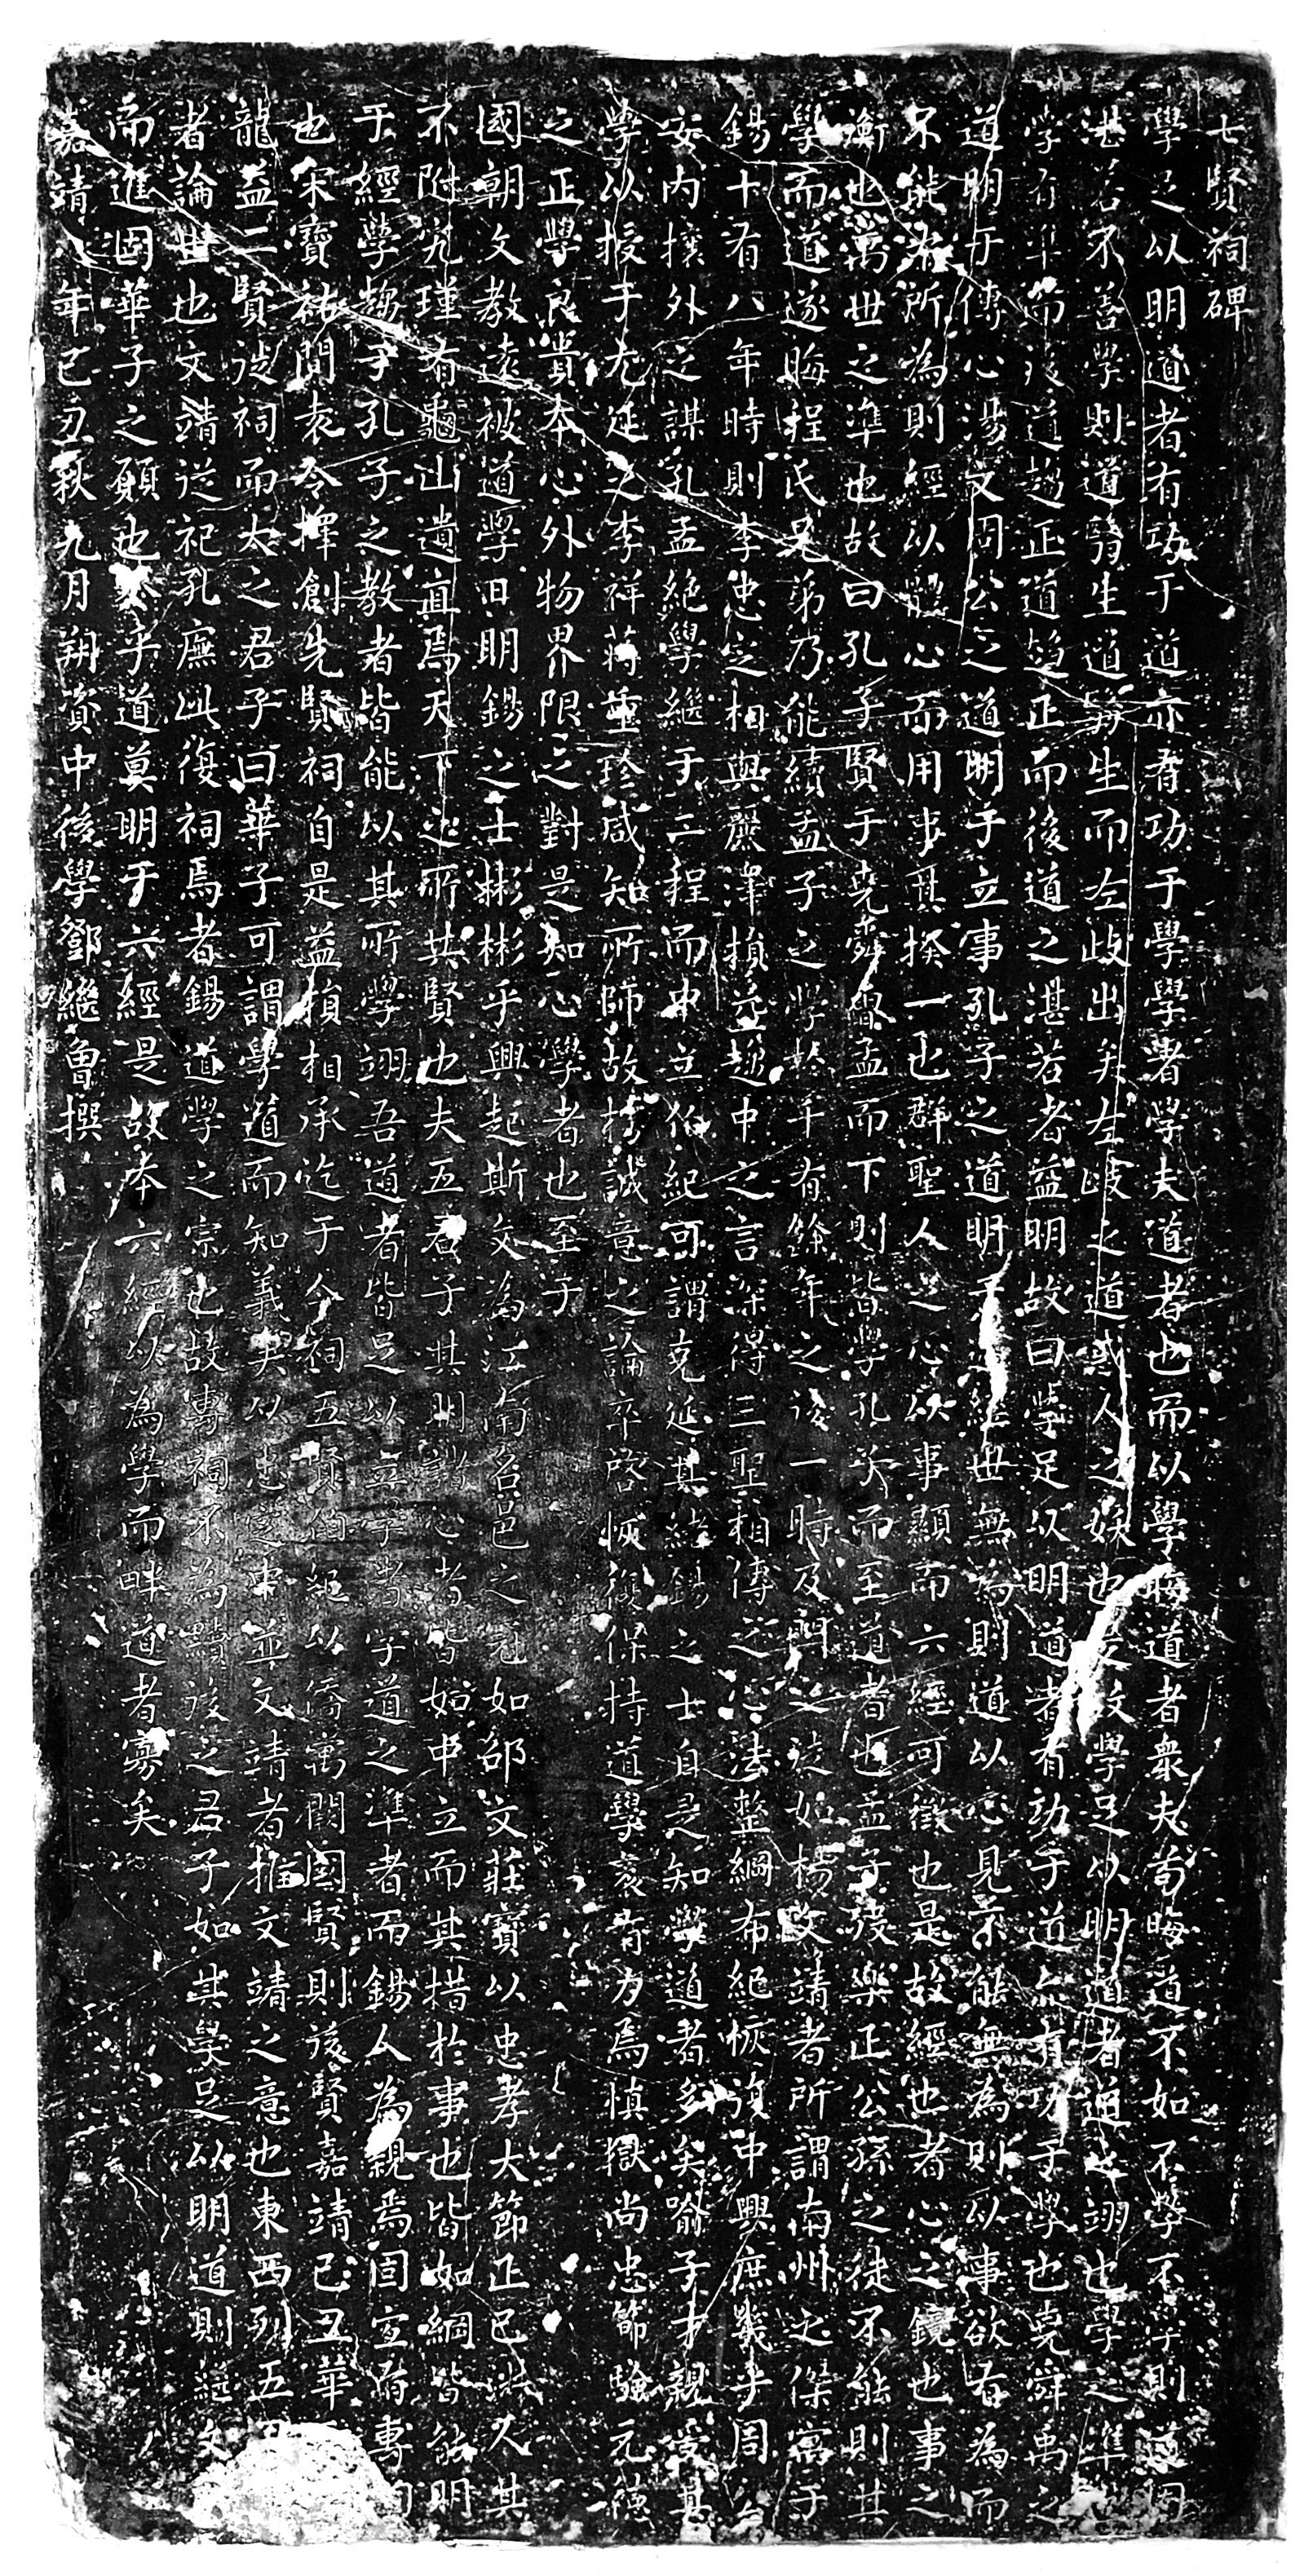 七賢祠碑
學足以明道者有功于道亦有功于學學者學夫道者也而以學晦道者衆夫苟晦道不如不學不學則道固
湛若不善學則道翳生道翳生而左歧出矣左歧之道惑人之娛也是故學足以明道者道之翊也學之準
學有準而後道趨正道趨正而後道之湛若者益明故曰學足以明道者有功于道亦有功于學也堯舜禹之
道明于傳心湯文周公之道明于立事孔子之道明于經世無為則道以心見不能無為則以事欲有為而
不能有所為則經以體心而用事其揆一也群聖人之心以事顯而六經可徵也是故經也者心之鏡也事之
衡也萬世之準也故曰孔子賢于堯舜曾孟而下則皆學孔氏而至道者也孟子歿樂正公孫之徒不能則其
學而道遂晦程氏兄弟乃能續孟子之學於千有餘年之後一時及門之徒如楊文靖者所謂南州之傑寓于
錫十有八年時則李忠定相與麗澤損益趨中之言深得三聖相傳之心法整綱布紀恢復中興庶幾乎周公
安內攘外之謀孔孟絕學繼于二程而中立伯紀可謂克延其緒錫之士自是知學道者多矣喻子才親受其
學以授于尤延之李祥蔣重珍咸知所師故格誠意之論卒啟恢復保持道學袞有力焉慎獄尚忠節驗元德
之正學良貴本心外物界限之對是知心學者也至于
國朝文教遠被道學日明錫之士彬彬乎興起斯文為江南名邑之冠如邵文莊寶以忠孝大節正己淑人其
不附宄瑾有龜山遺直焉天下之所共賢也夫五君子其明諸心者皆如中立而其措於事也皆如綱皆能明
于經學鵠于孔子之教者皆能以其所學翊吾道者皆足以立學者學道之準者而錫人為親焉固宜有專祠
也宋寶祐間袁令擇創先賢祠自是益損相承迄于今祠五賢伯紀以僑寓闕國賢則後賢嘉靖己丑華
龍益二賢從祠而大之君子曰華子可謂學道而知義矣以忠定中並文靖者推文靖之意也東西列五
者論世也文靖從祀孔廡此復祠焉者錫道學之宗也故專祠不為黷後之君子如其學足以明道則繼
而進固華子之願也嗟乎道莫明于六經是故本六經以為學而畔道者寡矣
嘉靖八年己丑秋九月朔資中後學鄧繼魯撰